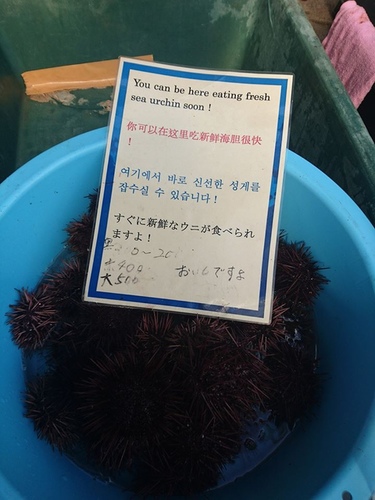 You can be here eating fresh
sea urchin soon !
你可以在这里吃新鲜海胆很快
!
여기에서 바로 신선한 성게를
잡수실 수 있습니다 !
すぐに新鮮なウニが食べられ
ますよ !
おいしですよ
大500